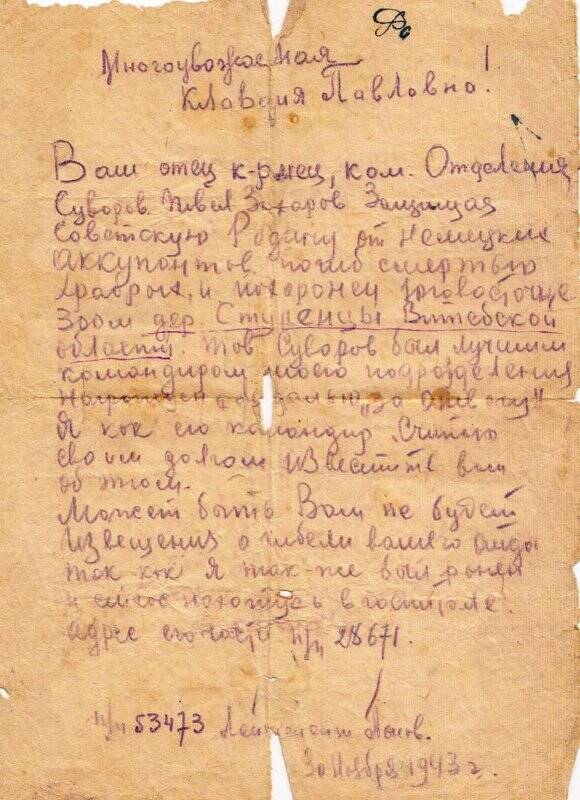 Многоуважаемая
Клавдия Павловна!
Ваш отец к-рмец, ком. Отделения
Суворов Павел Захаров Защищая
Советскую Родину от Немецких
Аккупонтов погиб смертью
храбрых, и похоронен
дер. Ступенцы Витебской
области. Тов Суворов был лучшим
командиром моего подразделения
Награжден медалью „За Отвагу"
Я как его командир Считаю
своим долгом известить вам
об этом.
Может быть Вам не будет
Извещения о гибели вашего отца
так как Я так-же был ранен
и сейчас нахожусь в госпитале.
адрес его части п/п 28671.
п/п 53473 Лейтенант
30 Ноября 1943 г.